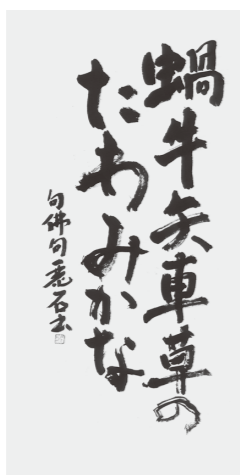 蝸牛矢車草の
たわみかな
句佛句 虎石書